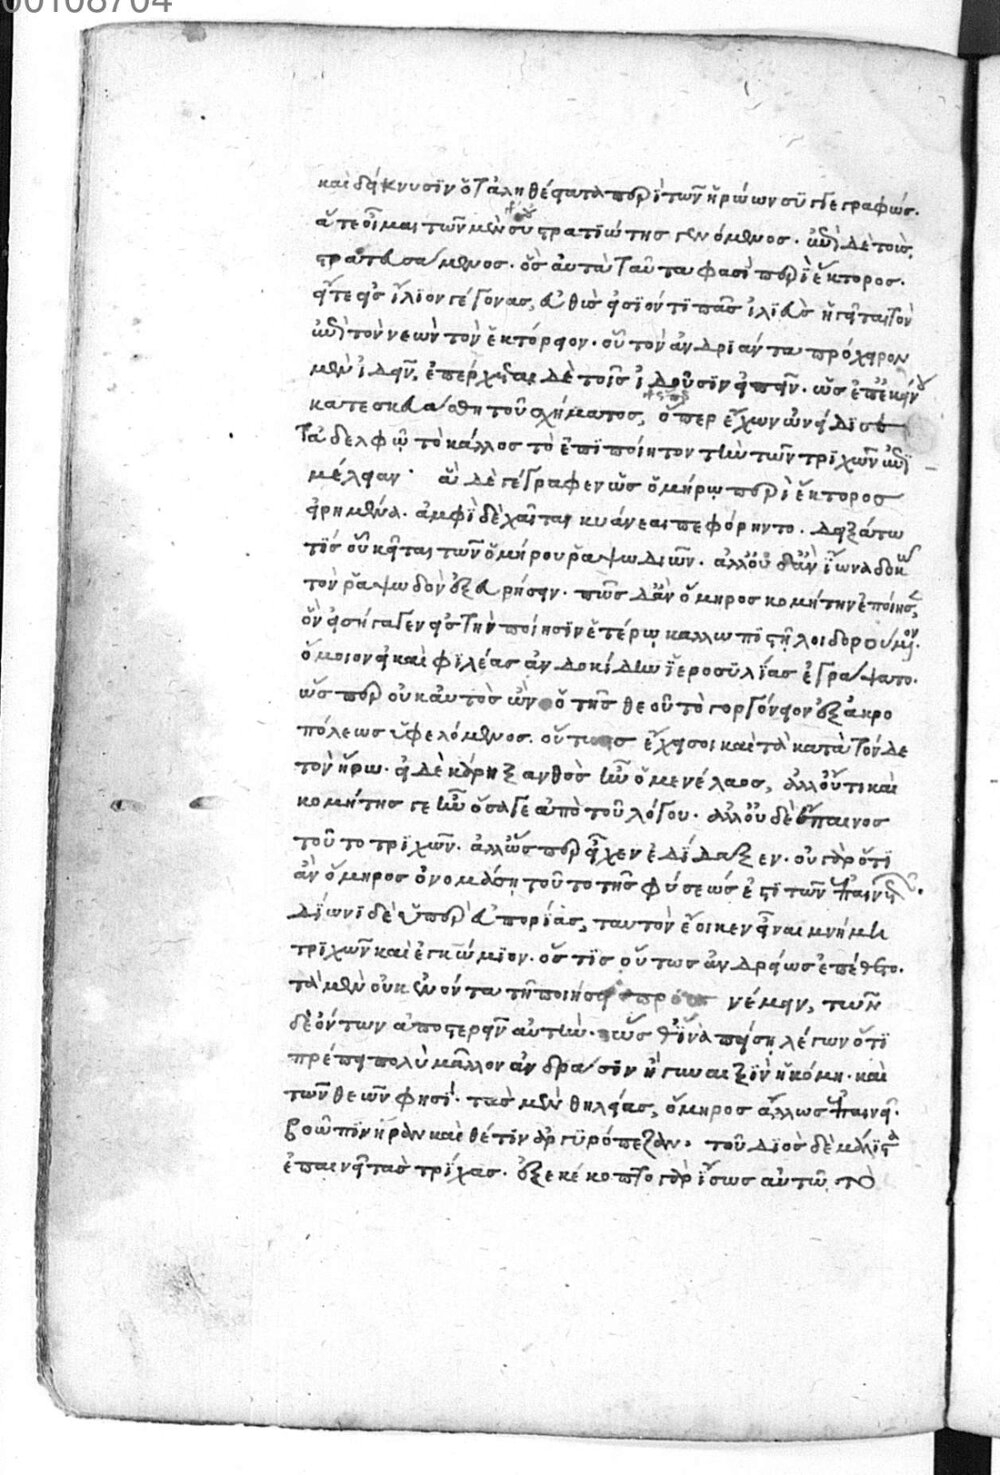 00108704
καὶ δείκνυσιν ὅτἀληθέστατα περὶ τῶν ἡρώων συγγεγραφώς.
ἅτε οἶμαι τῶν μὲν συστρατιώτης γενόμενος. ἐπὶ δὲ τοὺς
στρατευσάμενος. ὃς αὐτὰ ταῦτα φασὶ περὶ ἕκτορος.
εἴτε εἰς ἴλιον γέγονας, εὐθὺς εἰσιόντι πᾶς ἰλιεὺς ἡγεῖται τὸν
ἐπὶ τὸν νεὼν τὸν ἑκτόρειον. οὗ τὸν ἀνδριάντα πρόχειρον
μὲν ἰδεῖν, ἐπέρχεται δὲ τοῖς ἰδοῦσιν εἰπεῖν. ὡς ἐπ' ἐκείνου
κατεσκευάσθη τοῦ σχήματος, ὅπερ ἔχων ὠνείδισε
τἀδελφῷ τὸ κάλλος τὸ ἐπιποίητον τὴν τῶν τριχῶν ἐπι
μέλειαν. ἃ δὲ γέγραφεν ὡς ὁμήρῳ περὶ ἕκτορος
εἰρημένα. ἀμφὶ δὲ χαῖται κυάνεαι πεφόρηντο. δειξάτω
τίς οὗ κεῖται τῶν ὁμήρου ῥαψωδιῶν. ἀλλ' οὐδ' ἂν ἴωνα δοκῶ
τὸν ῥαψωδὸν ἐξευρήσειν. πῶς δ' ἂν ὅμηρος κομήτην ἐποίησεν,
ὃν εἰσήγαγεν εἰς τὴν ποίησιν ἑτέρῳ καλλωπιστῇ λοιδορούμενον.
ὅμοιον εἰ καὶ φιλέας ἀνδοκίδην ἱεροσυλίας ἐγράψατο.
ὥσπερ οὐκ αὐτὸς ὢν ὁ τῆς θεοῦ τὸ γοργόνειον ἐξ ἀκρο
πόλεως ὑφελόμενος. οὕτως ἔχει σοι καὶ τὰ κατὰ τόνδε
τὸν ἥρω. εἰ δὲ κάρη ξανθὸς ἦν ὁ μενέλαος, ἀλλ' οὔτι καὶ
κομήτης γε ἦν ὅσα γε ἀπὸ τοῦ λόγου. ἀλλ' οὐδὲ ἔπαινος
τοῦτο τριχῶν. ἀλλ' ὥσπερ εἶχεν ἐδίδαξεν. οὐ γὰρ ὅτι
ἂν ὅμηρος ὀνομάσῃ τοῦτο τῆς φύσεώς ἐστι τῶν ἐπαινετῶν.
δίωνι δὲ ὑπὲρ εὐπορίας, ταυτὸν ἔοικεν εἶναι μνήμη
τριχῶν καὶ ἐγκώμιον. ὅστις οὕτως ἀνδρείως ἐπέθετο.
τὰ μὲν οὐκ ἐνόντα τῇ ποιήσει προσνέμειν, τῶν
δεόντων ἀποστερεῖν αὐτήν. πῶς ἵνα πείσῃ λέγων ὅτι
πρέπει πολὺ μᾶλλον ἀνδράσιν ἢ γυναιξὶν ἡ κόμη. καὶ
τῶν θεῶν φησί. τὰς μὲν θηλείας, ὅμηρος ἄλλως ἐπαινεῖ.
βοῶπιν ἥραν καὶ θέτιν ἀργυρόπεζαν. τοῦ διὸς δὲ μάλιστα
ἐπαινεῖ τὰς τρίχας. ἐξεκέκοπτο γὰρ ἴσως αὐτῷ τὸ